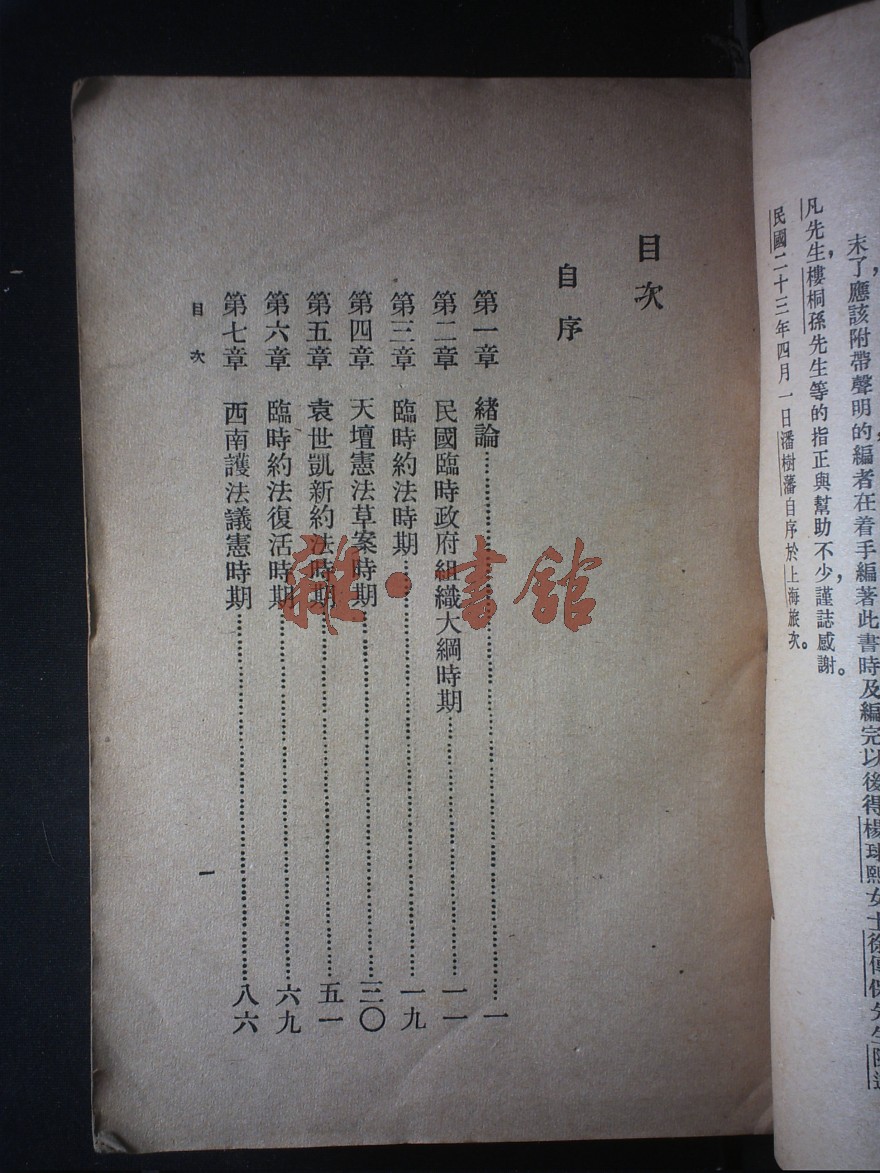 末了應該附帶聲明的，編者在着手編著此書時，及編完以後，得楊琇熙女士徐傳保先生陳
凡先生，樓桐孫先生等的指正與幫助不少，謹誌感謝。
民國二十三年四月一日潘樹藩自序於上海旅次。
目次
自序
第一章　緒論……一
第二章　民國臨時政府組織大綱時期……一一
第三章　臨時約法時期……一九
第四章　天壇憲法草案時期……三〇
第五章　袁世凱新約法時期……五一
第六章　臨時約法復活時期……六九
第七章　西南護法議憲時期……八六
目次
一
雜·書館